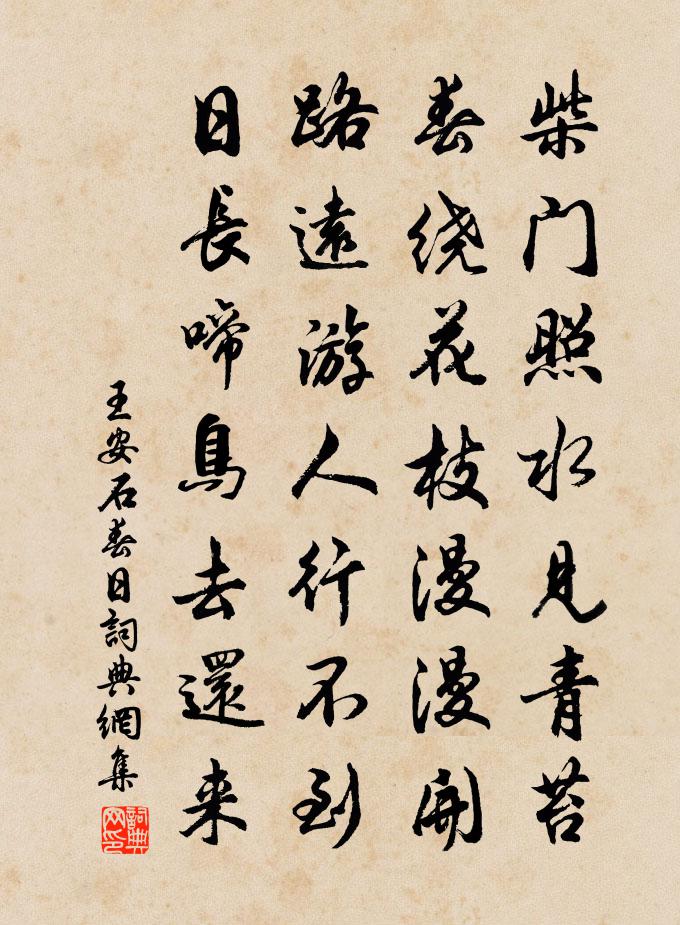 柴门照水见青苔
春绕花枝漫漫開
路遠游人行不到
日長啼鳥去還来
王安石春日詞典網集
詞典网印